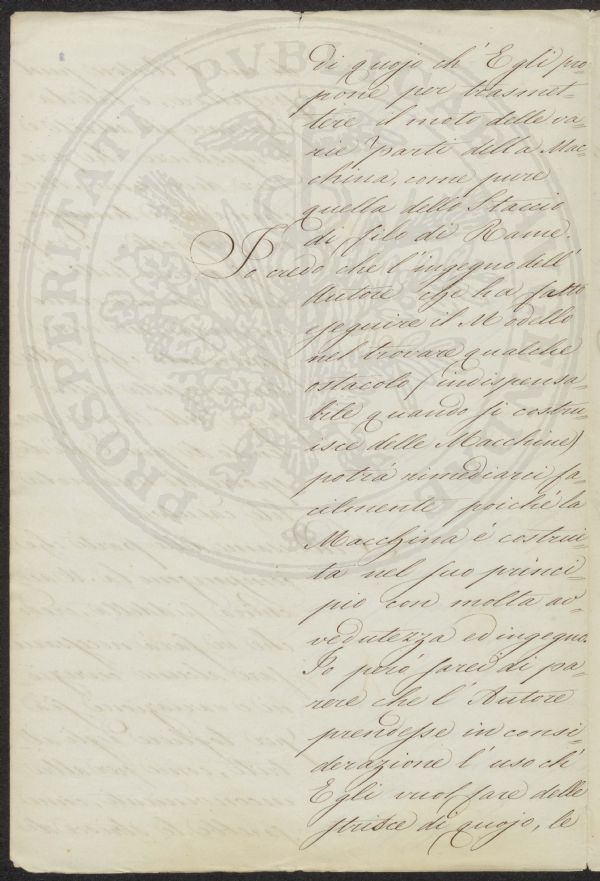 di quojo ch' Egli pro=
pone per trasmet=
tere il moto delle va=
rie parti della Mac=
china, come pure
quella dello Staccio
di filo di Rame.
Io credo che l'ingegno dell'
Autore che ha fatto
eseguire il Modello
nel trovare qualche
ostacolo (indispensa=
bile quando si costru=
isce delle Macchine)
potrá rimediarci fa=
cilmente poiché la
Macchina é costrui=
ta nel suo princi=
pio con molta av=
vedutezza ed ingegno.
Io peró sarei di pa=
rere che l'Autore
prendesse in consi=
derazione l'uso ch'
Egli vuol fare delle
strisce di quojo, le
PROSPERITATI PUBLICAE AUGENDAE